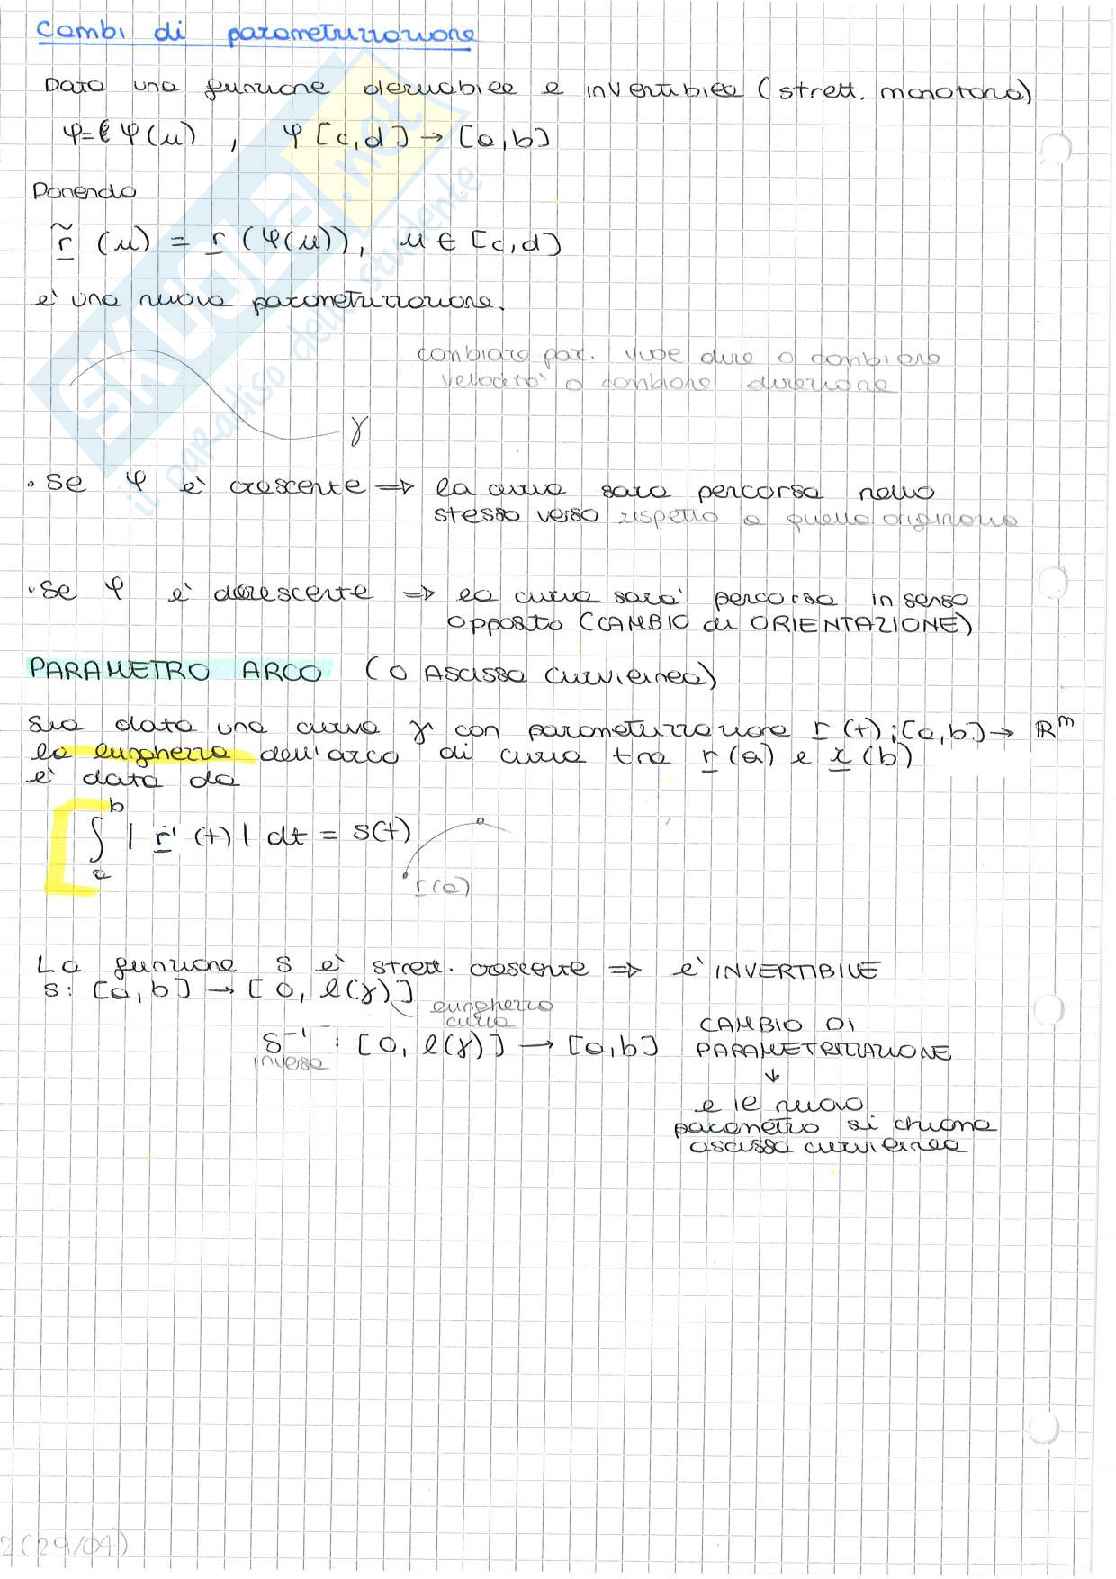 Cambi di parametrizzazione
Data una funzione derivabile e invertibile (strett. monotona)
φ = φ(u) , φ [c,d] → [a,b]
Ponendo
r̃ (u) = r (φ(u)), u ∈ [c,d]
e' una nuova parametrizzazione.
cambiare par. vuole dire o cambiare
velocità o cambiare direzione
γ
. se φ e' crescente ⇒ la curva sara percorsa nello
stesso verso rispetto a quello originario
. se φ e' decrescente ⇒ la curva sara' percorsa in senso
opposto (CAMBIO di ORIENTAZIONE)
PARAMETRO ARCO (o Ascissa curvilinea)
sia data una curva γ con parametrizzazione r (t) : [a,b] → ℝᵐ
la lunghezza dell'arco di curva tra r (a) e r (b)
e' data da
∫ₐᵇ | r' (t) | dt = s(t)
r(a)
La funzione s e' strett. crescente ⇒ e' INVERTIBILE
s: [a,b] → [0, l(γ)]
lunghezza
curva
s⁻¹ : [0, l(γ)] → [a,b]
inversa
CAMBIO DI
PARAMETRIZZAZIONE
↓
e il nuovo
parametro si chiama
ascissa curvilinea
2(29/04)
SKUOLA.net
il paradiso dello studente